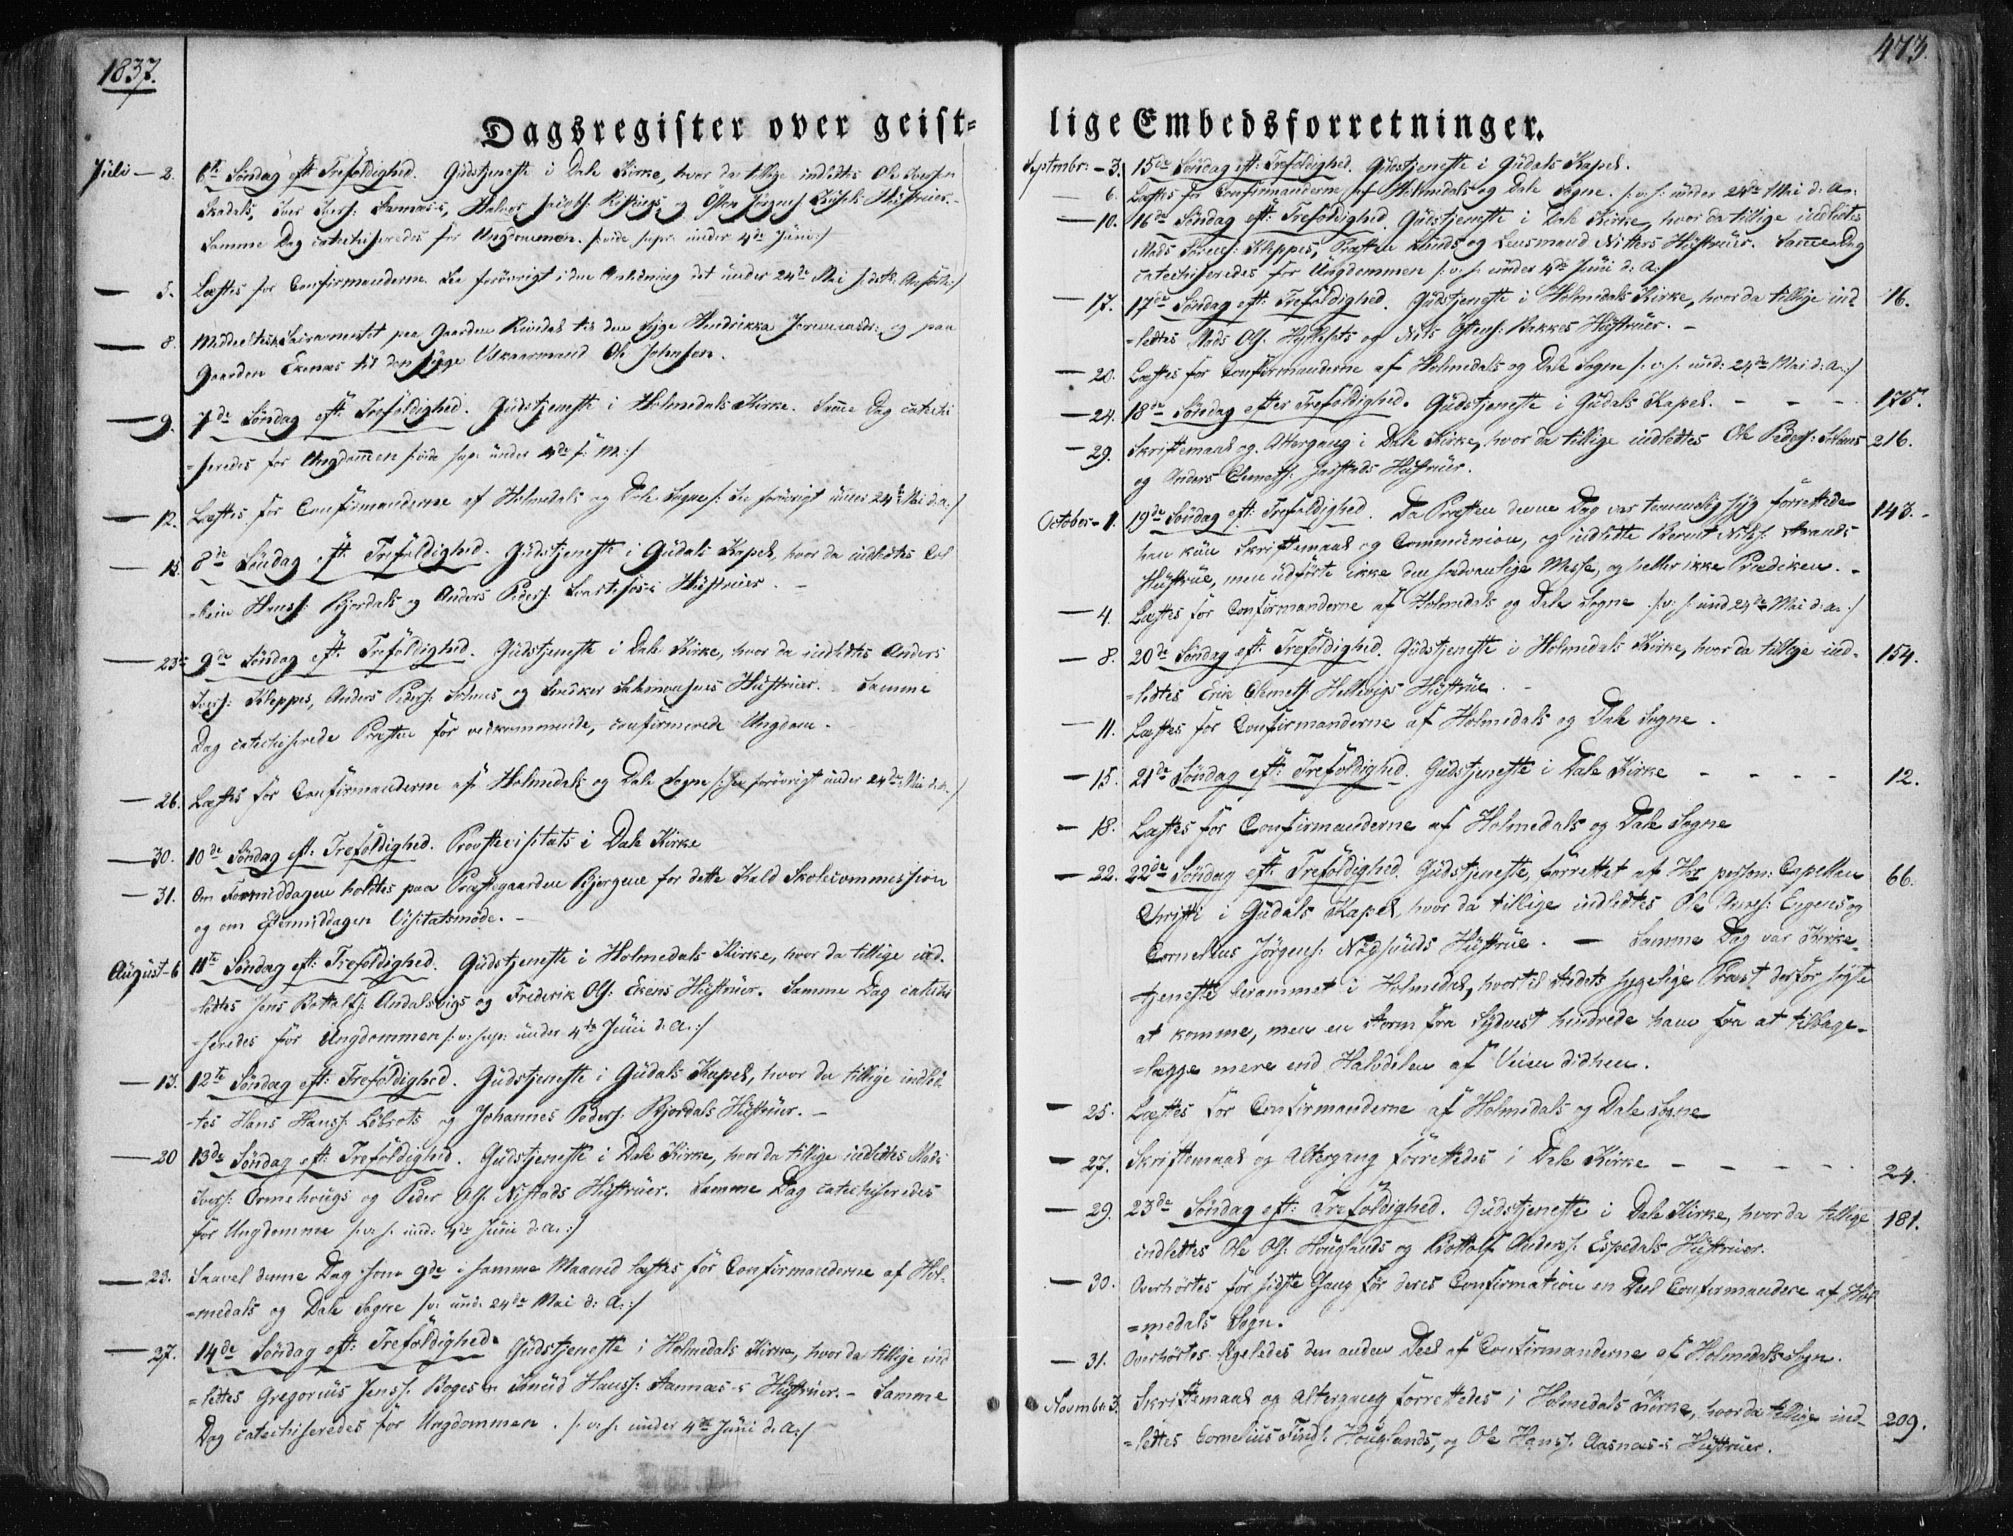 1837.
473.
Dagsregister over geist=
lige Embedsforretninger.
Juli — 2. 6te Søndag eft. Trefoldighed. Gudstjeneste i Dale Kirke, hvor da tillige indledtes Ole
Hustruer.
Samme Dag catechiseredes for Ungdommen /: vide supr. under 4de Juni :/
— 5. Læstes for Confirmanderne. See forövrigt i den Anledning det under 24de Mai
— 8. Sacramentet paa Gaarden Rivedal til den syge Hendrikka og paa
Gaarden til den syge Ole Johnsen.
— 9. 7de Søndag eft. Trefoldighed. Gudstjeneste i Holmedals Kirke. Samme Dag catechi
=seredes for Ungdommen /: vide supr. under 4de f: M :/
— 12. Læstes for Confirmanderne af Holmedals og Dale Sogne /: See forövrigt under 24de Mai d: a :/
— 15. 8de Søndag eft. Trefoldighed. Gudstjeneste i Gudals Kapel, hvor da indledtes
Hans: Bjordals og Anders Peders: Hustruer. —
— 23. 9de Søndag eft. Trefoldighed. Gudstjeneste i Dale Kirke, hvor da indledtes Anders
Ivers: Kleppes, Anders Peders: og Hustruer. Samme
Dag catechiserede Præsten for vedkommende, confirmerede Ungdom.
— 26. Læstes for Confirmanderne af Holmedals og Dale Sogne /: See forövrigt under 24de Mai d: a :/
— 30. 10de Søndag eft: Trefoldighed. Provstevisitats i Dale Kirke
— 31. Om Formiddagen holdtes paa Præstegaarden for dette Kald Skolecommission
og om Eftermiddagen Visitatsmöde. —
August — 6 11te Søndag eft: Trefoldighed. Gudstjeneste i Holmedals Kirke, hvor da tillige ind-
ledtes Jens og Frederik Ols: Hustruer. Samme Dag catechi
=seredes for Ungdommen /: v: supr: under 4de Juni d: A :/
— 13. 12te Søndag eft: Trefoldighed. Gudstjeneste i Gudals Kapel, hvor da tillige indled
-tes Hans Hans: Löbrots og Johannes Peders: Bjordals Hustruer. —
— 20 13de Søndag eft: Trefoldighed. Gudstjeneste i Dale Kirke, hvor da tillige indledtes Mads
Ivers: Ormehougs og Peder Ols: Nistads Hustruer. Samme Dag catechiseredes
for Ungdomme /: v: s: und: 4de Juni d: A :/
— 23. Saavel denne Dag som 9de i samme Maaned læstes for Confirmanderne af Hol-
=medals og Dale Sogne /: v: und: 24de Mai d: A :/
— 27. 14de Søndag eft: Trefoldighed. Gudstjeneste i Holmedals Kirke, hvor da tillige ind
=ledtes Gregorius Jens: Boges og Hans: Hustruer. — Samme
Dag catechiseredes for Ungdommen. /: v: s: under 4de Juni d: A :/
Septembr: — 3. 15de Søndag eft: Trefoldighed. Gudstjeneste i Gudals Kapel.
— 6. Læstes for Confirmanderne af Holmedals og Dale Sogne. /: v: s: under 24de Mai d: A :
— 10. 16de Søndag eft: Trefoldighed. Gudstjeneste i Dale Kirke, hvor da tillige indledtes
Mads Kleppes, Præsten Lunds og Lensmand Hustruer. Samme Dag
catechiseredes for Ungdommen /: v: s: under 4de Juni d: A :/
— 17. 17de Søndag eft: Trefoldighed. Gudstjeneste i Holmedals Kirke, hvor da tillige ind 16.
=ledtes Mads Ols: og Nils Bakkes Hustruer. —
— 20. Læstes for Confirmanderne af Holmedals og Dale Sogne /: v: s: und: 24de Mai d: A :/
— 24. 18de Søndag efter Trefoldighed. Gudstjeneste i Gudals Kapel. — — — 175.
— 29. Skriftemaal og Altergang i Dale Kirke, hvor da tillige indledtes Ole Peders: 216.
og Anders Clemets: Hustruer.
October — 1. 19de Søndag eft: Trefoldighed. Da Præsten denne Dag var temmelig syg forrettede 143. -
han kun Skriftemaal og Communion, og indledte Bernt Nils: Strands
Hustrue, men udförte ikke den sædvanlige Messe, og heller ikke Prædiken. —
— 4. Læstes for Confirmanderne af Holmedals og Dale Sogne /: v: s: und 24de Mai d: A :/
— 8. 20de Søndag eft: Trefoldighed. Gudstjeneste i Holmedals Kirke, hvor da tillige ind- 154.
=ledtes Erik Clemets: Hellevigs Hustrue.
— 11. Læstes for Confirmanderne af Holmedals og Dale Sogne.
— 15. 21de Søndag eft: Trefoldighed. Gudstjeneste i Dale Kirke — — — — 12.
— 18. Læstes for Confirmanderne af Holmedals og Dale Sogne
— 22. 22de Søndag eft: Trefoldighed. Gudstjeneste, forrettet af Hr person: Capellan 66.
Christi i Gudals Kapel, hvor da tillige indledtes Ole og
Cornelius Jörgens: Hustrue. — Samme Dag var Kirke-
-tjeneste berammet i Holmedal, hvortil Stedets sygelige Præst derfor sögte
at komme, men en Storm fra Sydvest hindrede ham fra at tilbage-
=lægge mere end Halvdelen af Veien didhen.
— 25. Læstes for Confirmanderne af Holmedals og Dale Sogne
— 27. Skriftemaal og Altergang forrettedes i Dale Kirke — — — — — 24.
— 29. 23de Søndag eft: Trefoldighed. Gudstjeneste i Dale Kirke, hvor da tillige 181.
indledtes Ole Ols: Houglands og Rottolf Anders: Espedals Hustruer.
— 30. Overhörtes for sidste Gang för deres Confirmation en Deel Confirmandere af Hol
=medals Sogn.
— 31. Overhörtes ligeledes den anden Deel af Confirmanderne af Holmedals Sogn.
Novembr 3. Skriftemaal og Altergang forrettedes i Holmedals Kirke, hvor da tillige ind- 209.
=ledtes Cornelius Find: Houglands, og Ole Hans: Aasnæs-s Hustruer.